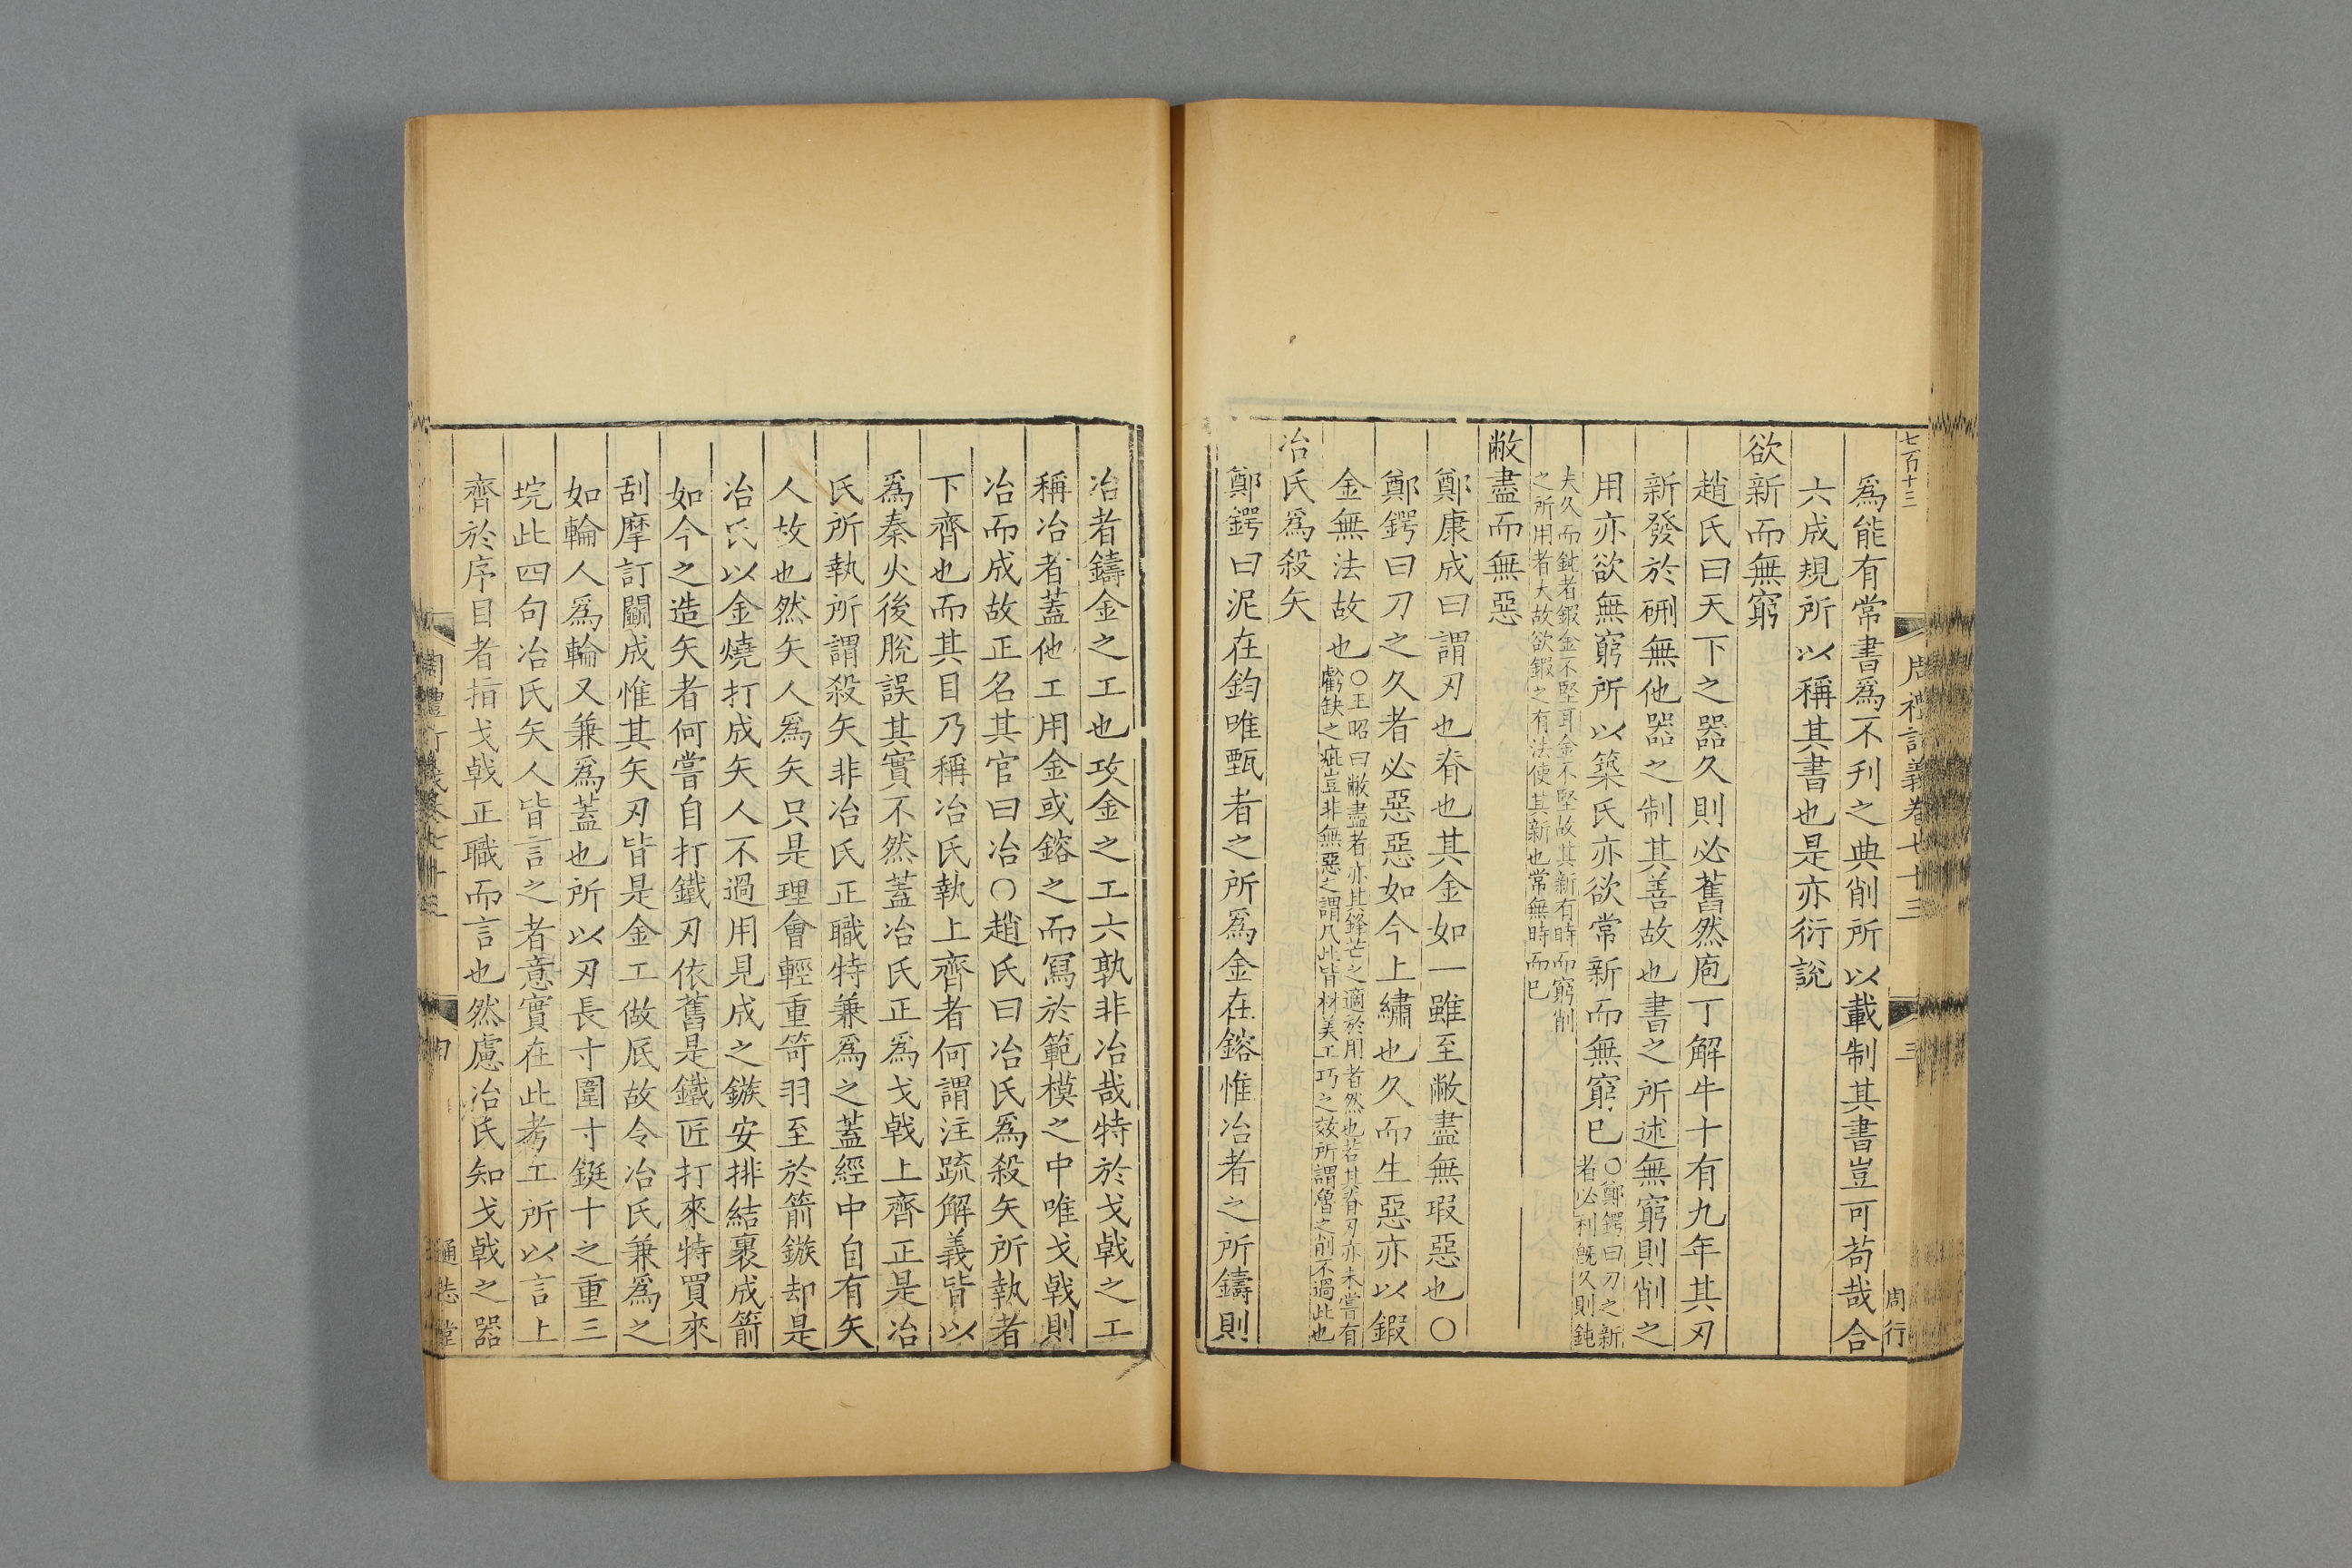 七百十三
周禮訂義卷七十三
三
周行
爲能有常書爲不刋之典削所以載制其書豈可苟哉合
六成規所以稱其書也是亦衍說
欲新而無窮
趙氏曰天下之器久則必舊然庖丁解牛十有九年其刃
新發於硎無他器之制其善故也書之所述無窮則削之
用亦欲無窮所以築氏亦欲常新而無窮已
○鄭鍔曰刀之新
者必利旣久則鈍
夫久而鈍者鍜金不堅耳金不堅故其新有時而窮削
之所用者大故欲鍜之有法使其新也常無時而已
敝盡而無惡
鄭康成曰謂刃也脊也其金如一雖至敝盡無瑕惡也○
鄭鍔曰刀之久者必惡惡如今上繡也久而生惡亦以鍜
金無法故也
○王昭曰敝盡者亦其鋒芒之適於用者然也若其脊刃亦未嘗有
虧缺之疵豈非無惡之謂凡此皆材美工巧之效所謂魯之削不過此也
冶氏爲殺矢
鄭鍔曰泥在鈞唯甄者之所爲金在鎔惟冶者之所鑄則
冶者鑄金之工也攻金之工六孰非冶哉特於戈戟之工
稱冶者蓋他工用金或鎔之而冩於範模之中唯戈戟則
冶而成故正名其官曰冶○趙氏曰冶氏爲殺矢所執者
下齊也而其目乃稱冶氏執上齊者何謂注疏解義皆以
爲秦火後脫誤其實不然蓋冶氏正爲戈戟上齊正是冶
氏所執所謂殺矢非冶氏正職特兼爲之蓋經中自有矢
人故也然矢人爲矢只是理會輕重笴羽至於箭鏃却是
冶氏以金燒打成矢人不過用見成之鏃安排結裹成箭
如今之造矢者何嘗自打鐵刃依舊是鐵匠打來特買來
刮摩訂鬭成惟其矢刃皆是金工做底故令冶氏兼爲之
如輪人爲輪又兼爲蓋也所以刃長寸圍寸鋌十之重三
垸此四句冶氏矢人皆言之者意實在此考工所以言上
齊於序目者指戈戟正職而言也然慮冶氏知戈戟之器
周禮訂義卷七十三
四
通志堂